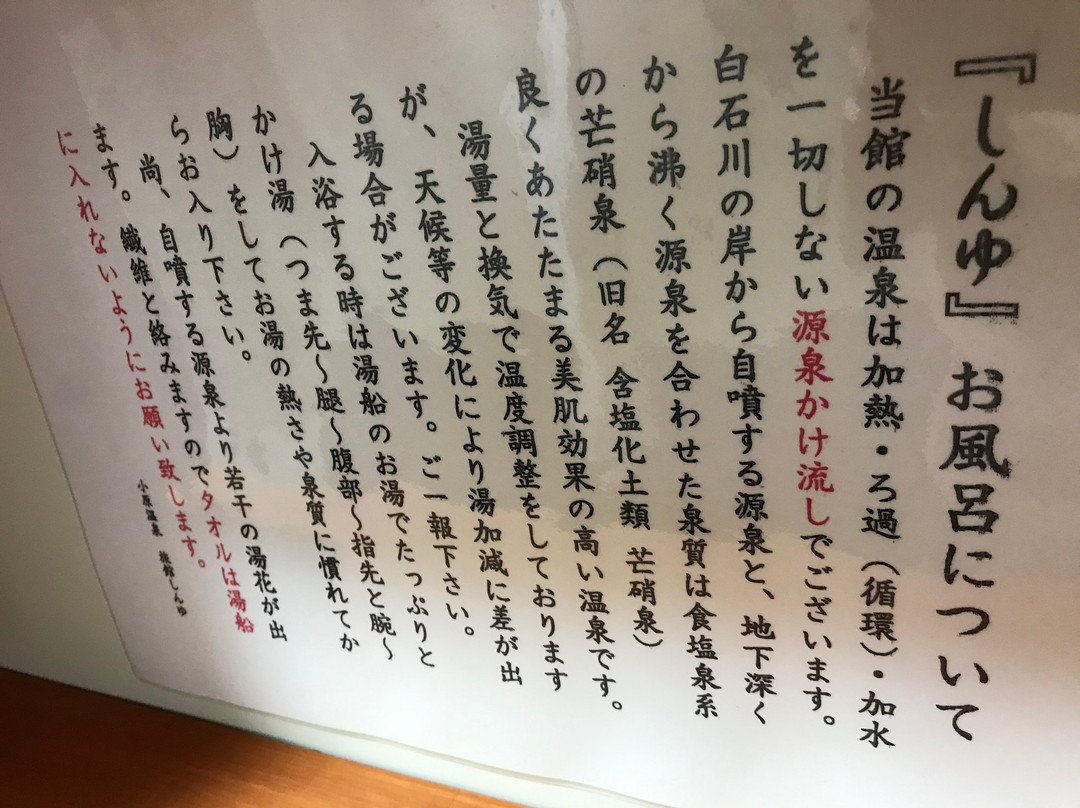 『しんゆ』お風呂について
当館の温泉は加熱・ろ過（循環）・加水
を一切しない源泉かけ流しでございます。
白石川の岸から自噴する源泉と、地下深く
から沸く源泉を合わせた泉質は食塩泉系
の芒硝泉（旧名 含塩化土類 芒硝泉）
良くあたたまる美肌効果の高い温泉です。
湯量と換気で温度調整をしております
が、天候等の変化により湯加減に差が出
る場合がございます。ご一報下さい。
入浴する時は湯船のお湯でたっぷりと
かけ湯（つま先～腿～腹部～指先と腕～
胸）をしてお湯の熱さや泉質に慣れてか
らお入り下さい。
尚、自噴する源泉より若干の湯花が出
ます。繊維と絡みますのでタオルは湯船
に入れないようにお願い致します。
小原温泉 旅館しんゆ